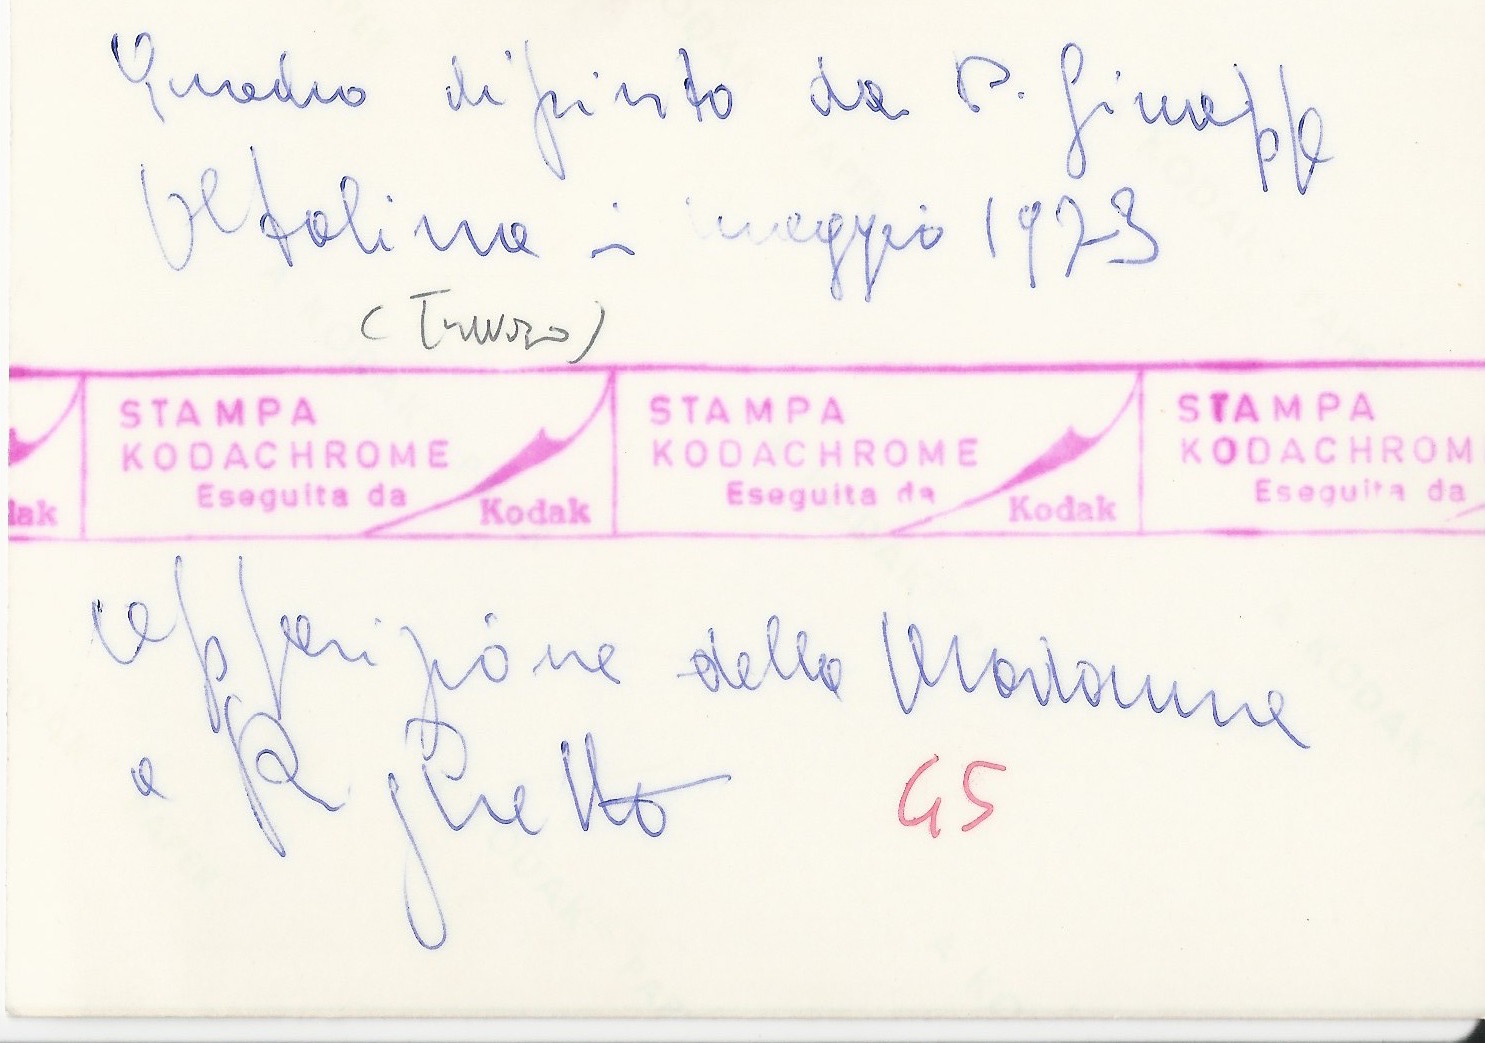 Quadro dipinto da P. Giuseppe
Vetalina in maggio 1973
STAMPA STAMPA STAMPA
KODACHROME KODACHROME KODACHROM
Eseguita da Eseguita da Eseguita da
dak Kodak Kodak
apparizione della Madonna
a Righetto G5